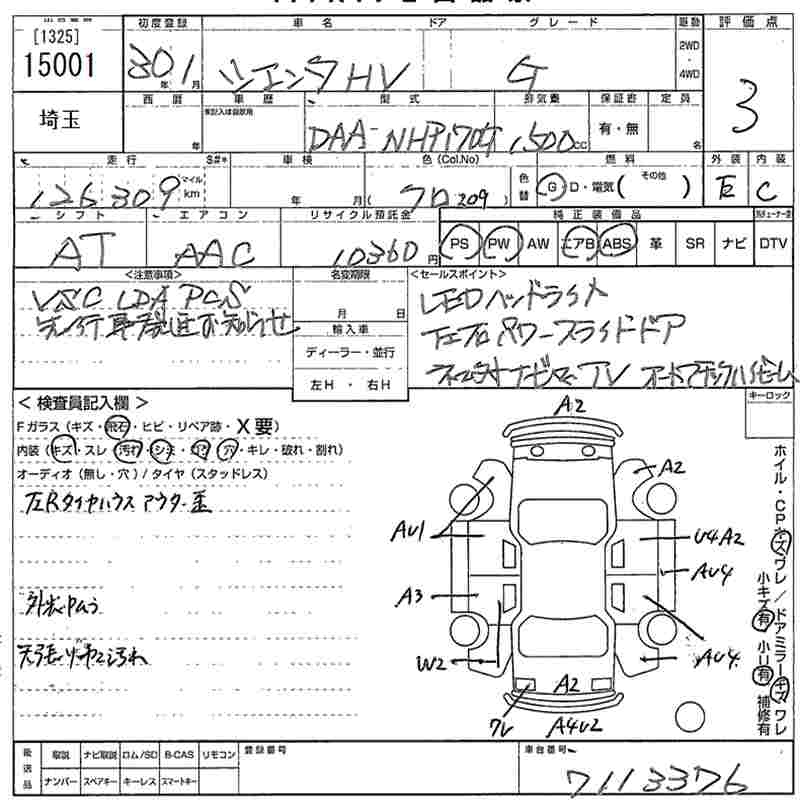 初度登録 車名 ドア グレード 駆動 評価点
[1325]
15001
30年1月 シエンタHV G 2WD・4WD 3
埼玉
西暦 車歴 型式 排気量 保証書 定員
年 DAA-NHP170G 1,500cc 有・無 名
走行 S#* 車検 色(Col.No) 燃料 外装 内装
126309 マイル km 年 月 ( 7D 209 ) 色替 G D・電気( その他 ) C
シフト エアコン リサイクル預託金 純正装備品
AT AAC 10360円 PS PW AW エアB ABS 革 SR ナビ DTV
<注意事項> 名変期限 <セールスポイント>
VSC LDA PCS
先行車発進お知らせ
月 日
輸入車
ディーラー・並行
左H・右H
LEDヘッドライト
左右パワースライドドア
ナビ TV
キーロック
< 検査員記入欄 >
Fガラス(キズ・飛石・ヒビ・リペア跡・X要)
内装(キズ・スレ・汚れ・シミ・コゲ・穴・キレ・破れ・割れ)
オーディオ(無し・穴)/タイヤ(スタッドレス)
左Rタイヤハウス アウター歪
A2
A2
AU1
U4A2
AU4
A3
W2
AU4
A2
ワレ
A4U2
ホイル・CPキズワレ/ドアミラーキズワレ
小キズ有 小U有 補修有
後送品 取説 ナビ取説 ロム/SD B-CAS リモコン 登録番号 車台番号
ナンバー スペアキー キーレス スマートキー
7113376